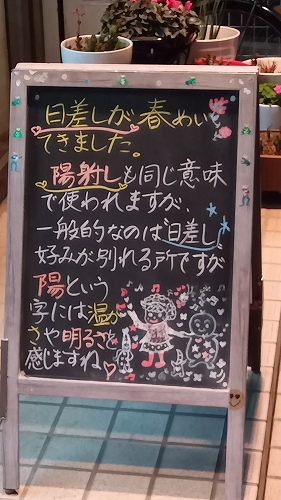 日差しが春めいて
きました。
陽射しも同じ意味
で使われますが
一般的なのは「日差し」
好みが別れる所ですが
陽という
字には温か
さや明るさを
感じますね